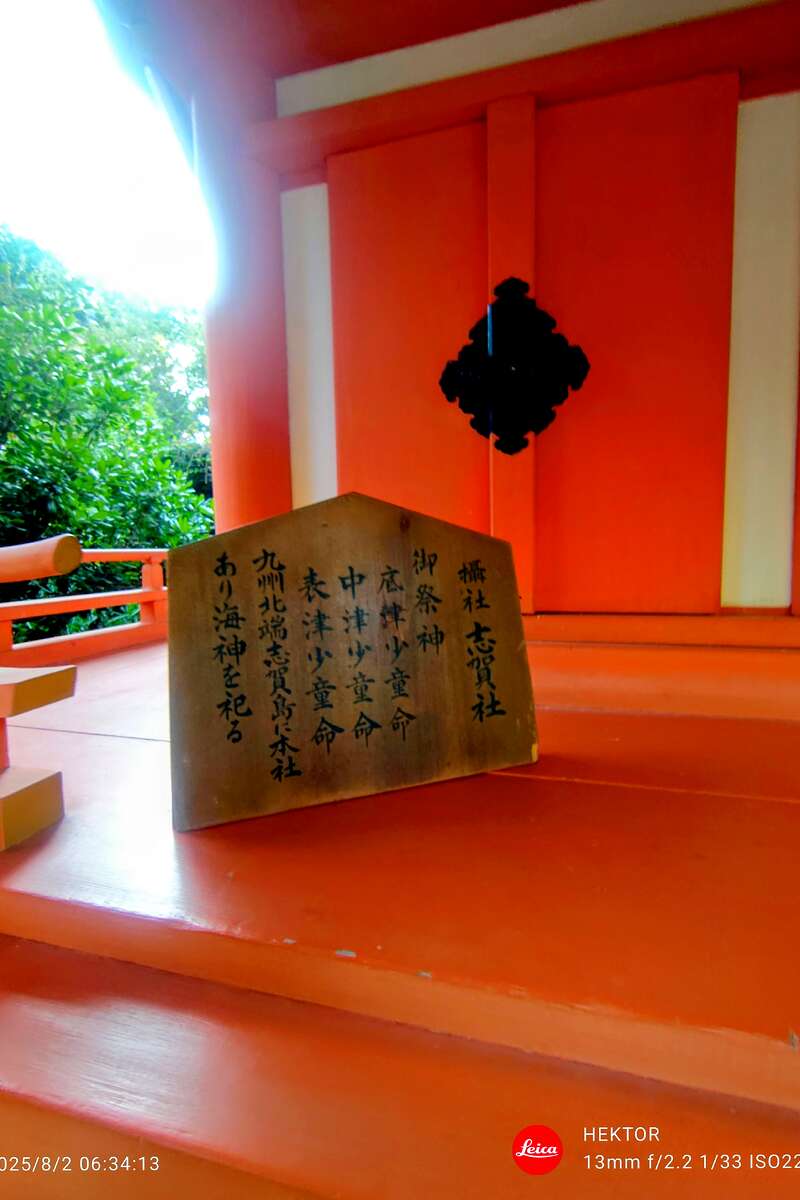 攝社 志賀社
御祭神
底津少童命
中津少童命
表津少童命
九州北端志賀島に本社
あり海神を祀る
025/8/2 06:34:13
Leica
HEKTOR
13mm f/2.2 1/33 ISO22